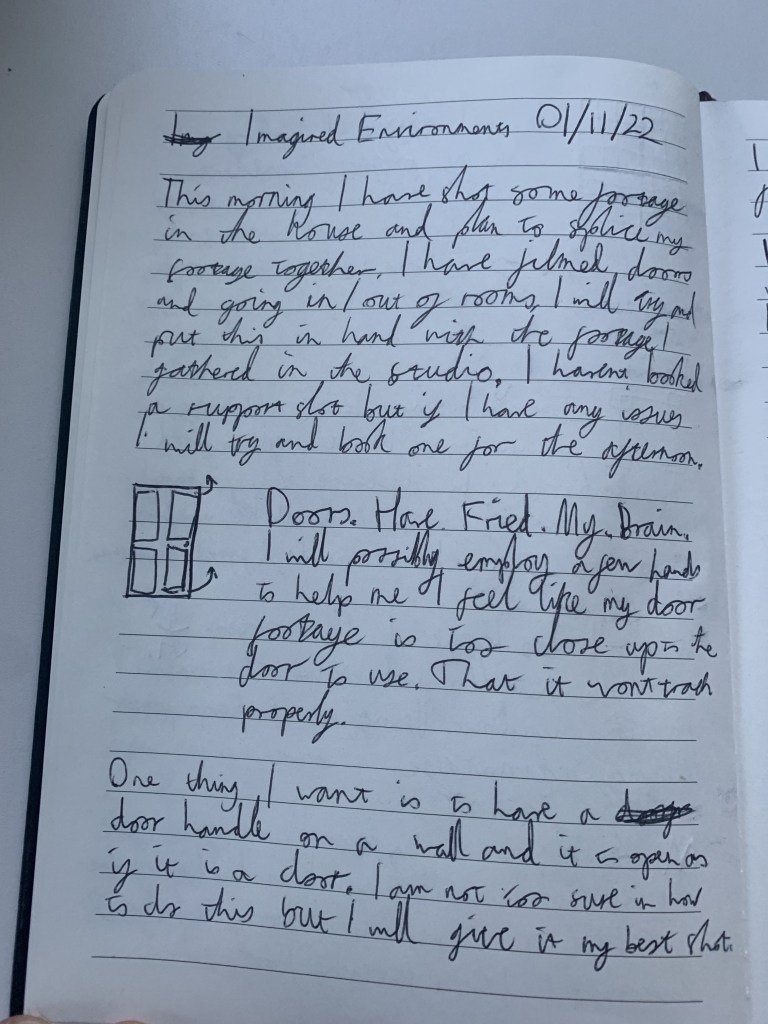 Imagined Environments 01/11/22
This morning I have shot some footage
in the house and plan to splice my
footage together. I have filmed doors
and going in/out of rooms, I will try and
put this in hand with the footage I
gathered in the studio. I havent booked
a support slot but if I have any issues
I will try and book one for the afternoon.
Doors. Have. Fried. My. Brain.
I will possibly employ a few hands
to help me I feel like my door
footage is too close up to the
door to use. That it wont track
properly.
One thing I want is to have a
door handle on a wall and it to open as
if it is a door. I am not too sure in how
to do this but I will give it my best shot.